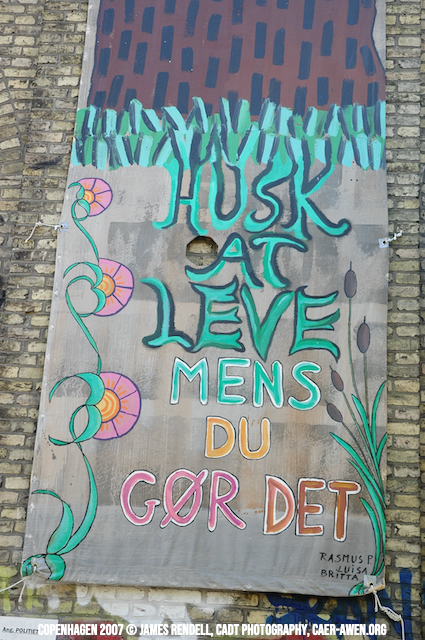 HUSK
AT
LEVE
MENS
DU
GØR DET
RASMUS P
LUISA
BRITTA
Ang. POLITIET
COPENHAGEN 2007 © JAMES RENDELL, CADT PHOTOGRAPHY, CAER-AWEN.ORG